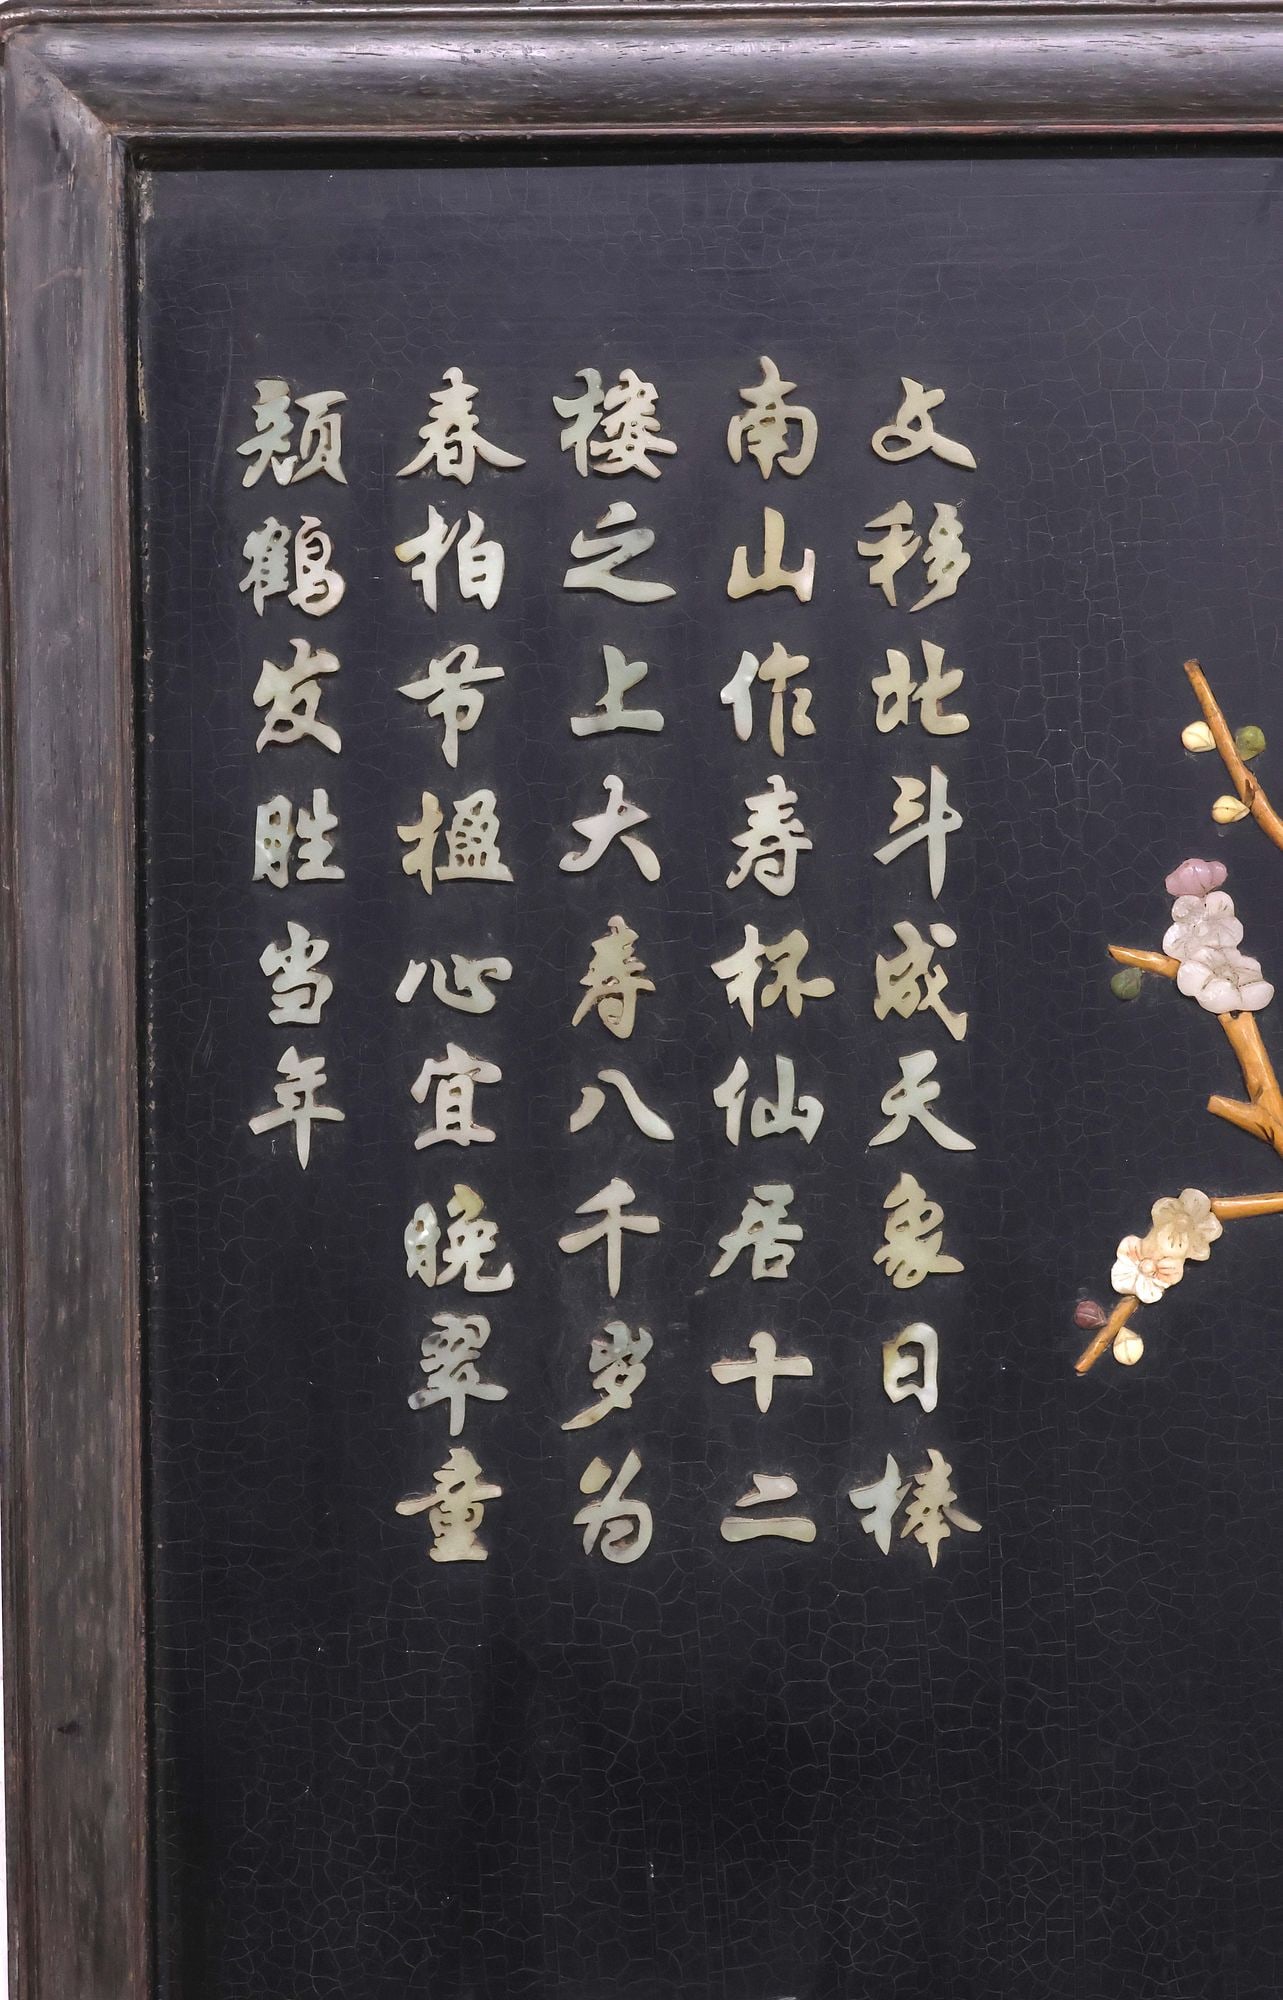 文移北斗成天象日捧
南山作寿杯仙居十二
楼之上大寿八千岁为
春柏节楹心宜晚翠童
颜鶴发胜当年